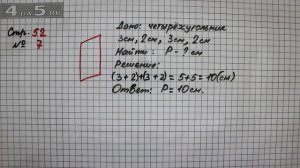 4 на 5.RU
Стр. 52
№ 7
Дано: четырёхугольник
3см, 2см, 3см, 2см
Найти: P - ? см
Решение:
(3+2)+(3+2) = 5+5 = 10(см)
Ответ: P = 10 см.